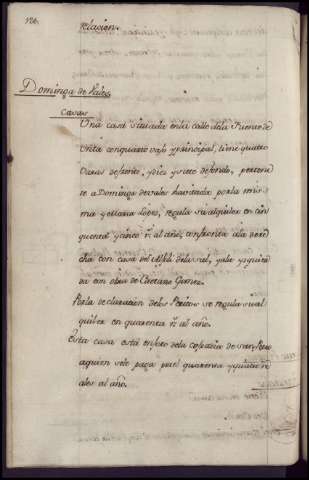 relacion.
Dominga de Vales
Casas
Una casa situada en la calle dela Fuente de
Onta con quarto vajo y principal, tiene quatro
varas de frente, y diez y siete de fondo, pertene
te a Dominga de vales havitada por la mis
ma y Maria Lopez, regula su alquiler en cin
quenta y cinco rs. al año, confronta a la dere
cha con casa del del val, y a la yzquier
da con otra de Caetano Gomez.
Por la declaracion delos Peritos se regula su al
quiler en quarenta rs. al año.
Esta casa está en foro dela cofradia de san
a quien sele paga por el quarenta y quatro r
ales al año.